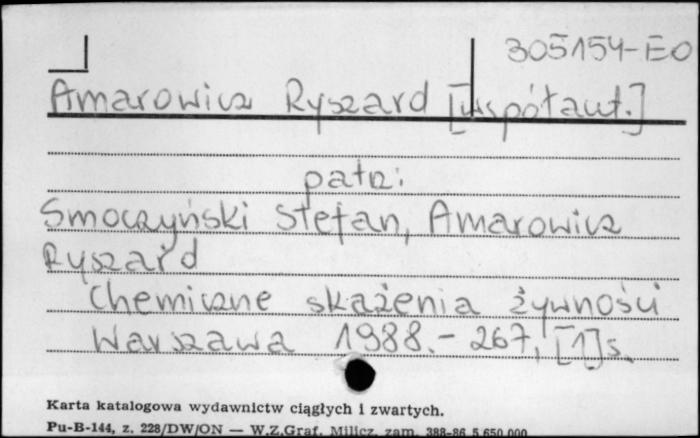 305154-EO
Amarowicz Ryszard [współaut.]
patrz:
Smoczyński Stefan, Amarowicz
Ryszard
Chemiczne skażenia żywności
Warszawa 1988.- 267, [1]s.
Karta katalogowa wydawnictw ciągłych i zwartych.
Pu-B-144, z. 228/DW/ON — W.Z.Graf. Milicz, zam. 388-86 5 650 000